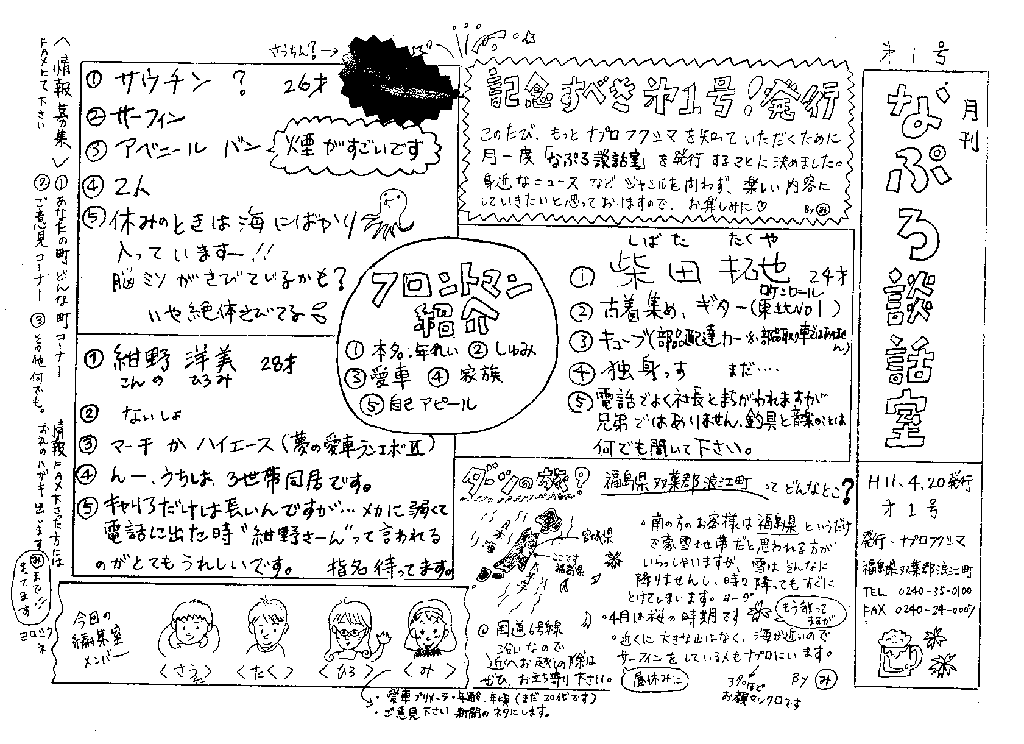 才1号
月刊
なぷろ談話室
H11.4.20発行
才1号
発行・ナプロフクシマ
福島県双葉郡浪江町
TEL 0240-35-0100
FAX 0240-34-0007
記念すべき才1号!発行
このたび、もっとナプロフクシマを知っていただくために
月一度「なぷろ談話室」を発行することに決めました。
身近なニュースなどジャンルを問わず、楽しい内容に
していきたいと思っておりますので、お楽しみに
By み
フロントマン
紹介
① 本名・年れい ② しゅみ
③ 愛車 ④ 家族
⑤ 自己アピール
しばた たくや
① 柴田 拓也 24才
ロケンロール
② 古着集め、ギター(東北NO1)
③ キューブ(部品配達カー
④ 独身っす まだ・・・・
⑤ 電話でよく社長とまちがわれますが
兄弟ではありません。釣具と音楽のことは
何でも聞いて下さい。
さうちん?→
① サウチン ? 26才
② サーフィン
③ アベニール バン
煙がすごいです
④ 2人
⑤ 休みのときは海にばかり
入っていますー!!
脳ミソがさびているかも?
いや絶体さびてる
① 紺野 洋美 28才
こんの ひろみ
② ないしょ
③ マーチかハイエース(夢の愛車ランエボⅣ)
④ んー、うちは、3世帯同居です。
⑤ キャリアだけは長いんですが…メカに弱くて
電話に出た時"紺野さーん"って言われる
のがとてもうれしいです。 指名待ってます。
福島県双葉郡浪江町ってどんなとこ?
宮城県
ここです
福島県
・南の方のお客様は福島県というだけ
で豪雪地帯だと思われる方が
いらっしゃいますが、雪はそんなに
降りませんし、時々降ってもすぐに
とけてしまいます。
・4月は桜の時期です
もう散ってるが
・近くに大きな山はなく、海が近いので
サーフィンをしている人もナプロにいます。
By み
@国道6号線
沿いなので
近くへお越しの際は
ぜひ、お立ち寄り下さい。
昼休みに
お顔マックロです
今回の
編集室
メンバー
<さえ>
<たく>
<ひろ>
<み>
・ご意見下さい 新聞のネタにします。
<情報募集>
FAXにて下さい
① あなたの町どんな町コーナー
② ご意見コーナー
③ その他何でも。
情報FAX下さった方には